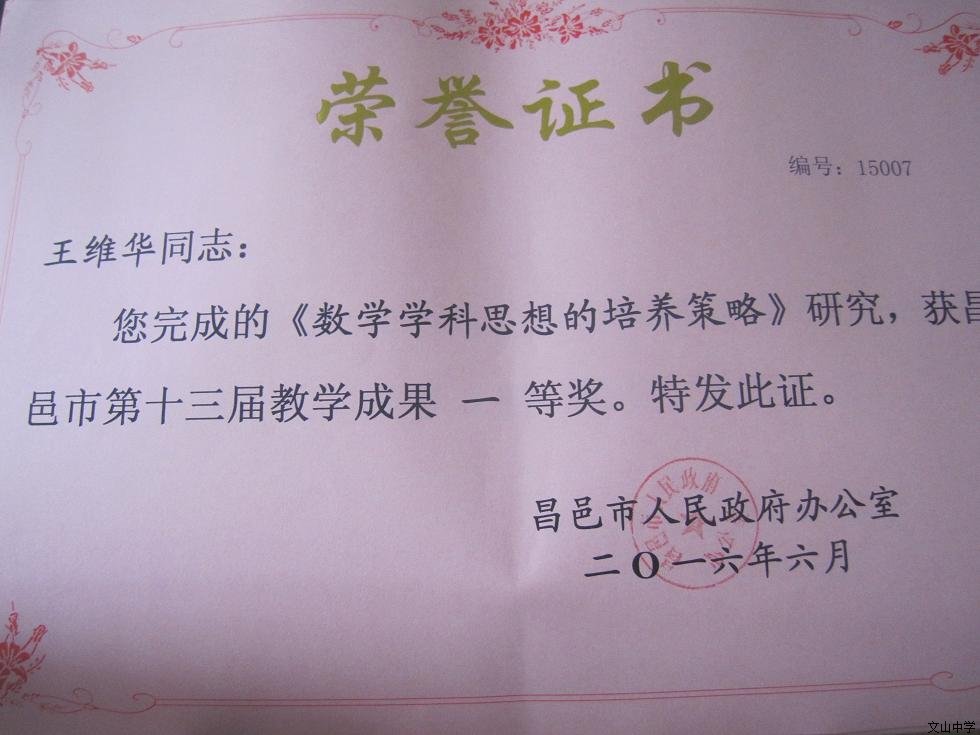 荣誉证书
编号：15007
王维华同志：
您完成的《数学学科思想的培养策略》研究，获昌
邑市第十三届教学成果 一 等奖。特发此证。
昌邑市人民政府办公室
二〇一六年六月
文山中学